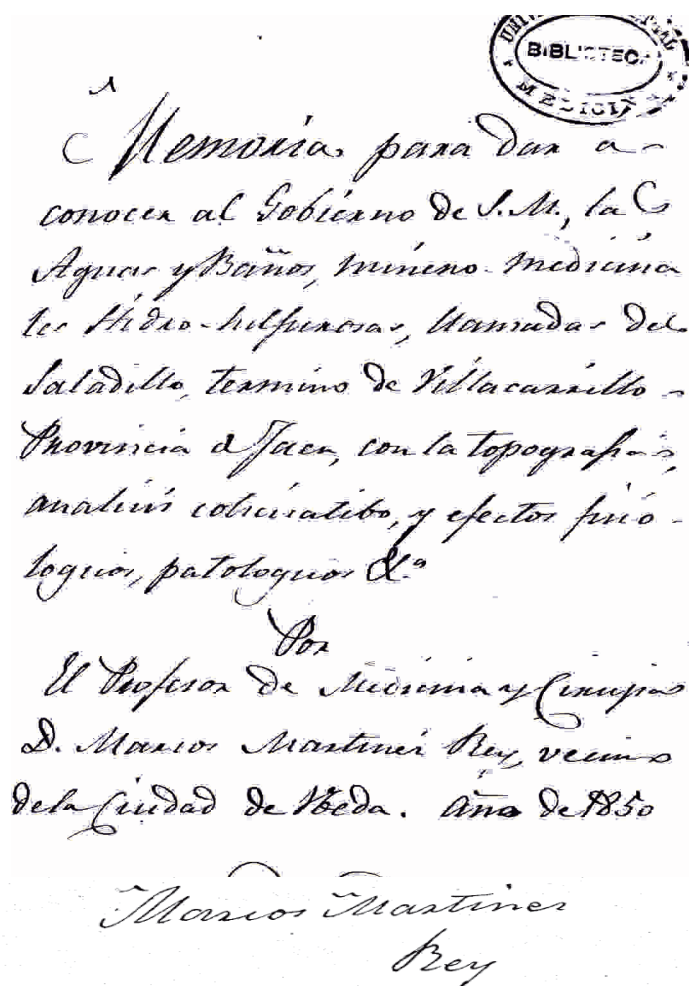 BIBLIOTECA
MEDICINA
Memoria para dar a
conocer al Gobierno de S.M., las
Aguas y Baños, minero-medicina
les Hidro-sulfurosas, llamadas del
Saladillo, termino de Villacarrillo
Provincia de Jaen, con la topografia,
analisis y efectos fisio-
logicos, patologicos &.a
Por
El Profesor de Medicina y Cirugia
D. Marcos Martinez Rey, vecino
de la Ciudad de Ubeda. Año de 1850
Marcos Martinez
Rey